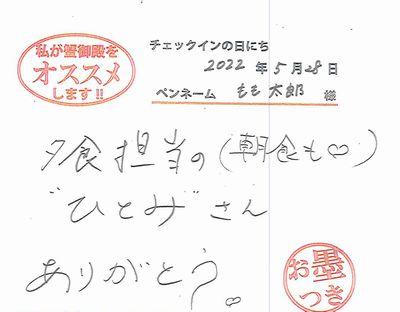 私が蟹御殿を
オススメ
します!!
チェックインの日にち
2022年5月28日
ペンネーム もも太郎 様
夕食担当の(朝食も♡)
"ひとみ"さん
ありがとう。
お墨
つき